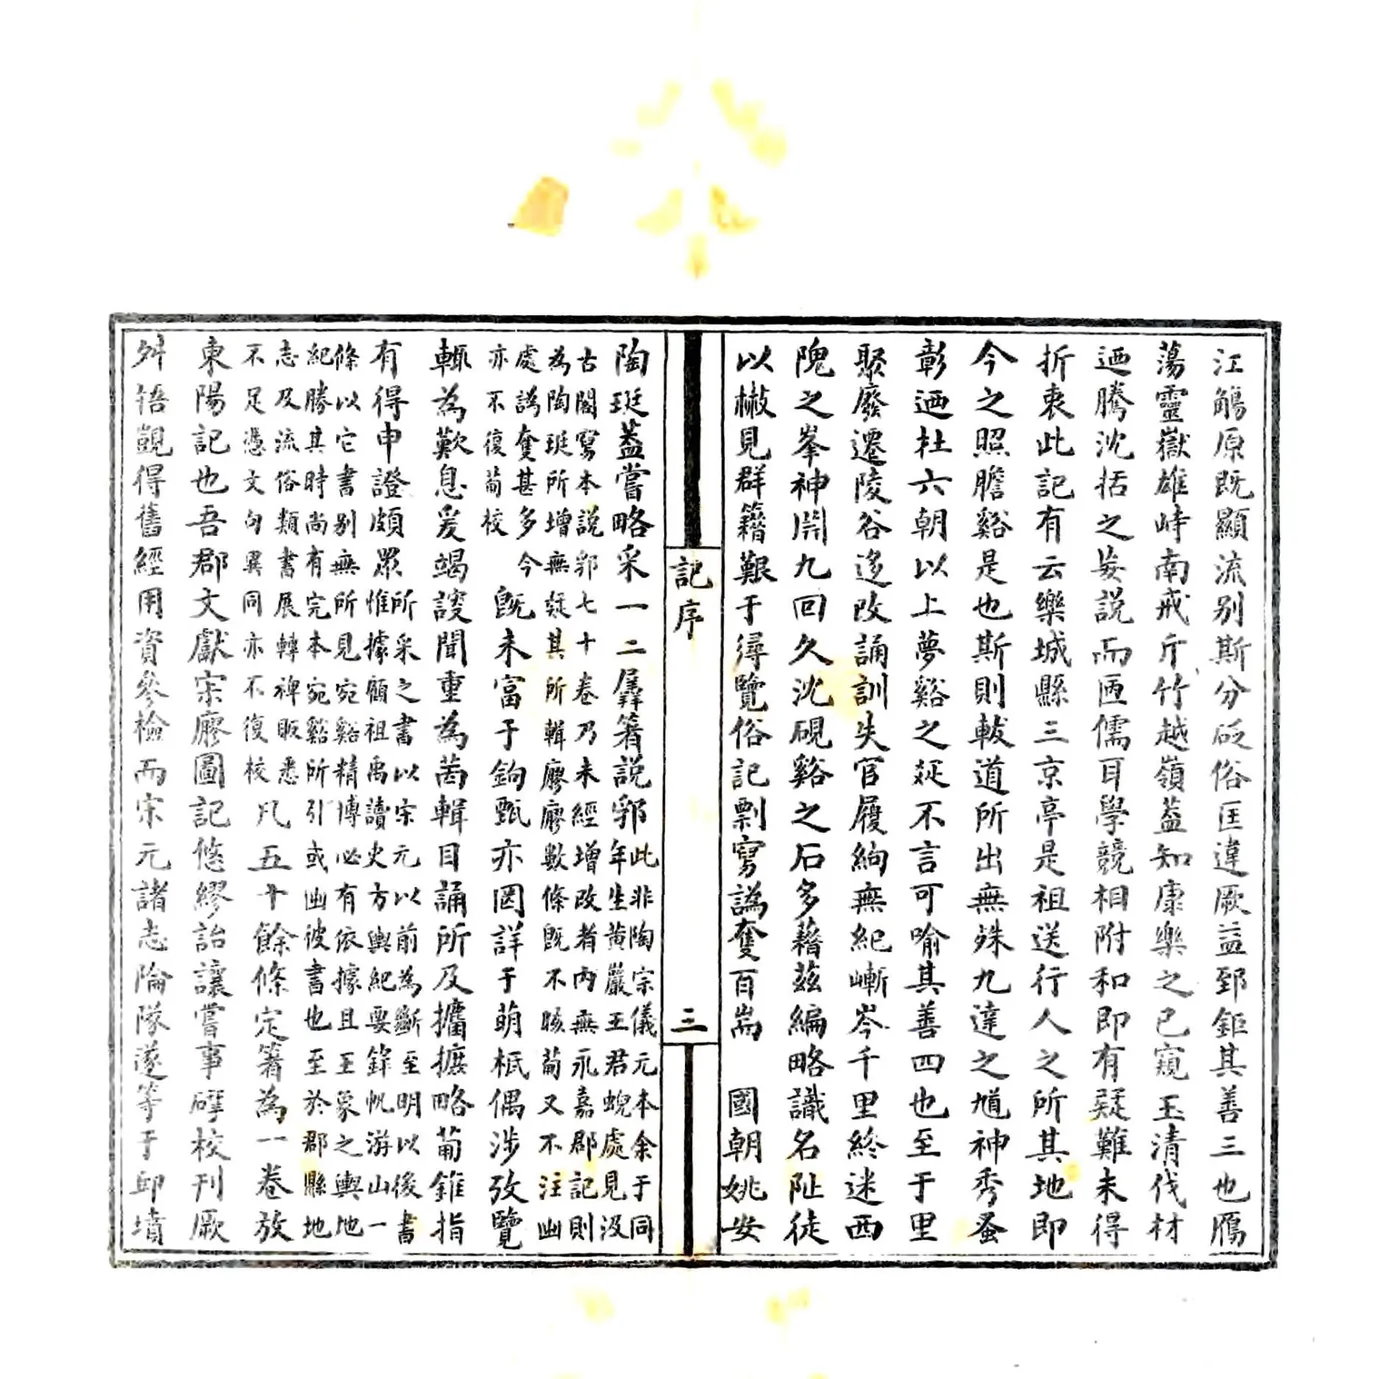 江觴原既顯流别斯分砭俗匡違厥益郅鉅其善三也鴈
蕩靈嶽雄峙南戒斤竹越嶺葢知康樂之已窺玉清伐材
迺騰沈括之妄説而匝儒耳學競相附和即有疑難未得
折衷此記有云樂城縣三京亭是祖送行人之所其地即
今之照膽谿是也斯則軷道所出無殊九達之馗神秀蚤
彰迺杜六朝以上夢谿之莚不言可喻其善四也至于里
聚廢遷陵谷迻改誦訓失官履絇無紀嶄岑千里終迷西
隗之峯神開九回久沈硯谿之石多藉茲編略識名阯徒
以檆見群籍艱于尋覽俗記剽寫譌奪百耑 國朝姚安
記序
三
陶珽葢嘗略采一二羼箸説郛
此非陶宗儀元本余于同
年生黄巖王君蜺處見汲
古閣寫本説郛七十卷乃未經增改者内無永嘉郡記則
為陶珽所增無疑其所輯廖廖數條既不晐葡又不注幽
處譌奪甚多今
亦不復葡校
既未富于鉤甄亦罔詳于萌柢偶涉攷覽
輒為歎息爰竭謏聞重為葘輯目誦所及攟摭略葡錐指
有得申證頗眾
所采之書以宋元以前為斷至明以後書
惟據顧祖禹讀史方輿紀要錄帆游山一
條以它書别無所見宛谿精博必有依據且王象之輿地
紀勝其時尚有完本宛谿所引或幽彼書也至於郡縣地
志及流俗類書展轉裨販悉
不足憑文句異同亦不復校
凡五十餘條定箸為一卷放
東陽記也吾郡文獻宗廖圖記悠繆詒讓嘗事㢡校刊厥
舛牾覬得舊經用資參檢而宋元諸志陯隊遂等于邱墳